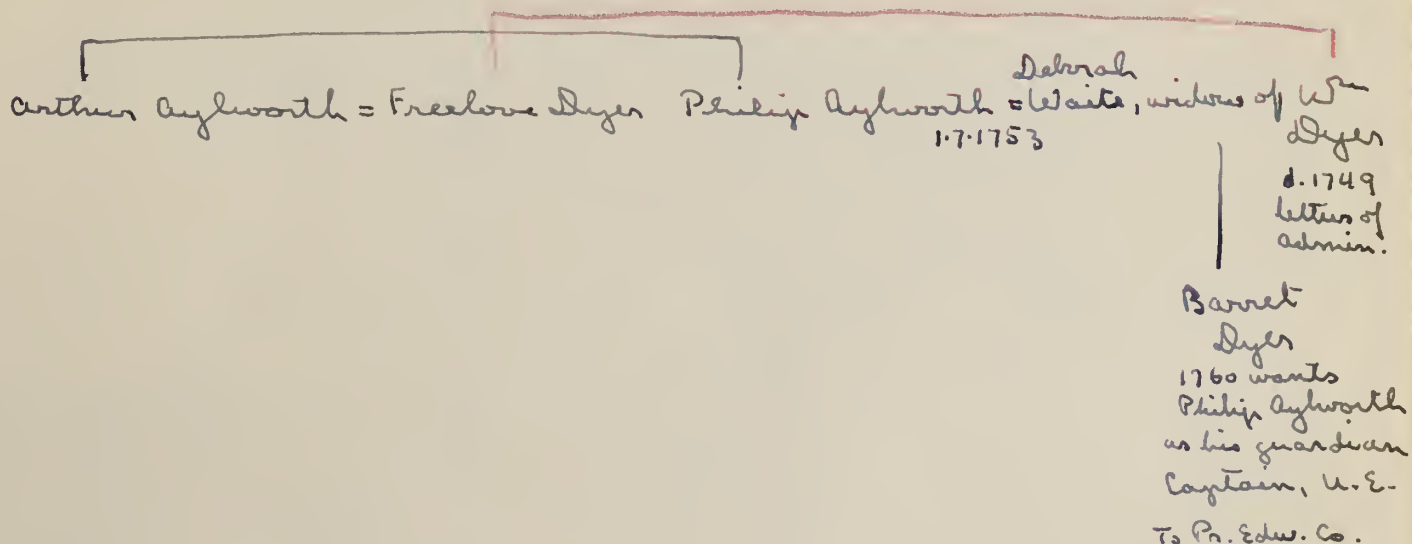 Arthur Aylworth = Freelove Dyer Philip Aylworth = Deborah Waite, widow of Wm Dyer
1.7.1753
d. 1749
letters of
admin.
Barret
Dyer
1760 wants
Philip Aylworth
as his guardian
Captain, U.E.
To Pr. Edw. Co.